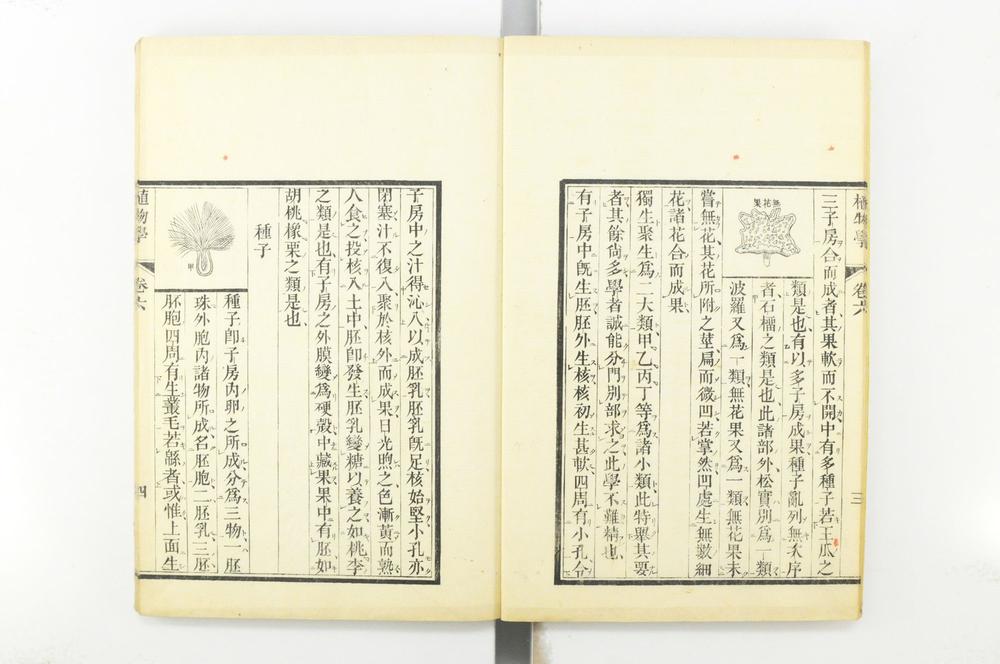 三子房合而成者其果軟而不開中有多種子若王瓜之
類是也有以多子房成果種子亂列無次序
者石榴之類是也此諸部外松實別爲一類
波羅又爲一類無花果又爲一類無花果未
無花果
嘗無花其花所附之莖扁而微凹若掌然凹處生無數細
花諸花合而成果
獨生聚生爲二大類甲乙丙丁等爲諸小類此特舉其要
者其餘尙多學者誠能分門別部求之此學不難精也
有子房中旣生胚胚外生核核初生甚軟四周有小孔令
植物學
卷六
三
子房中之汁得沁入以成胚乳胚乳旣足核始堅小孔亦
閉塞汁不復入聚於核外而成果日光煦之色漸黃而熟
人食之投核入土中胚卽發生胚乳變糖以養之如桃李
之類是也有子房之外膜變爲硬殼中藏果果中有胚如
胡桃橡栗之類是也
種子
甲
種子卽子房內卵之所成分爲三物一胚
珠外胞內諸物所成名胚胞二胚乳三胚
胚胞四周有生叢毛若緜者或惟上面生
植物學
卷六
四